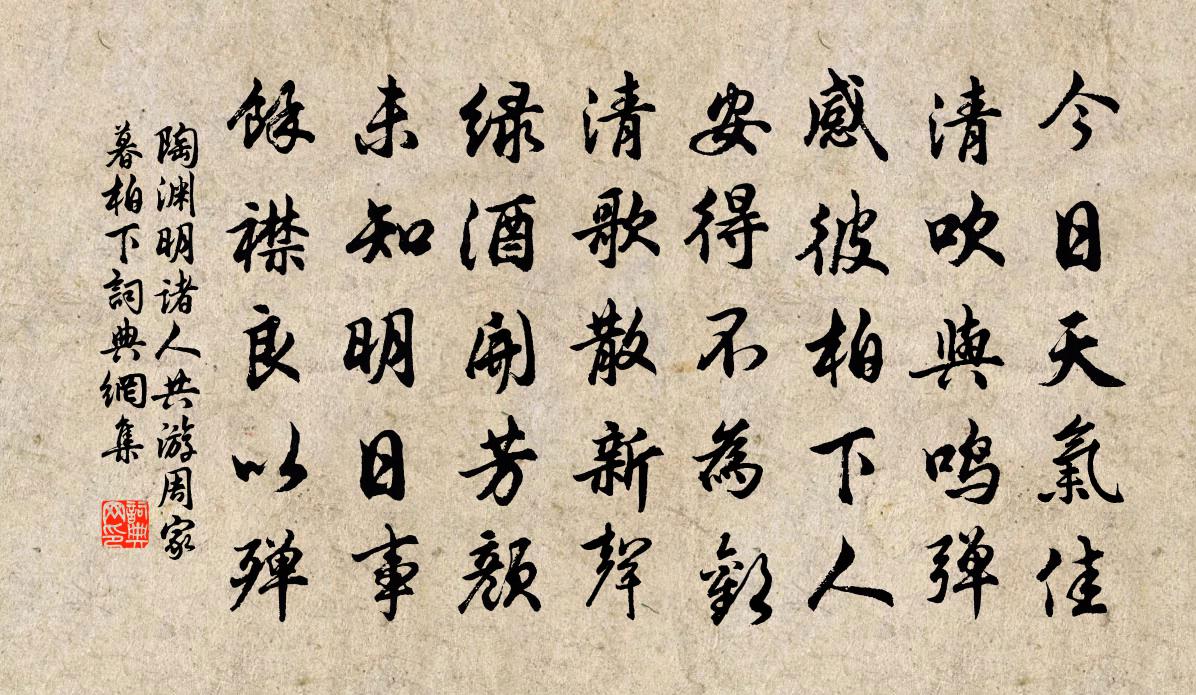 今日天氣佳
清吹與鳴彈
感彼柏下人
安得不為歡
清歌散新聲
緑酒開芳顏
未知明日事
餘襟良以殫
陶渊明诸人共游周家
暮柏下詞典網集
詞典网印